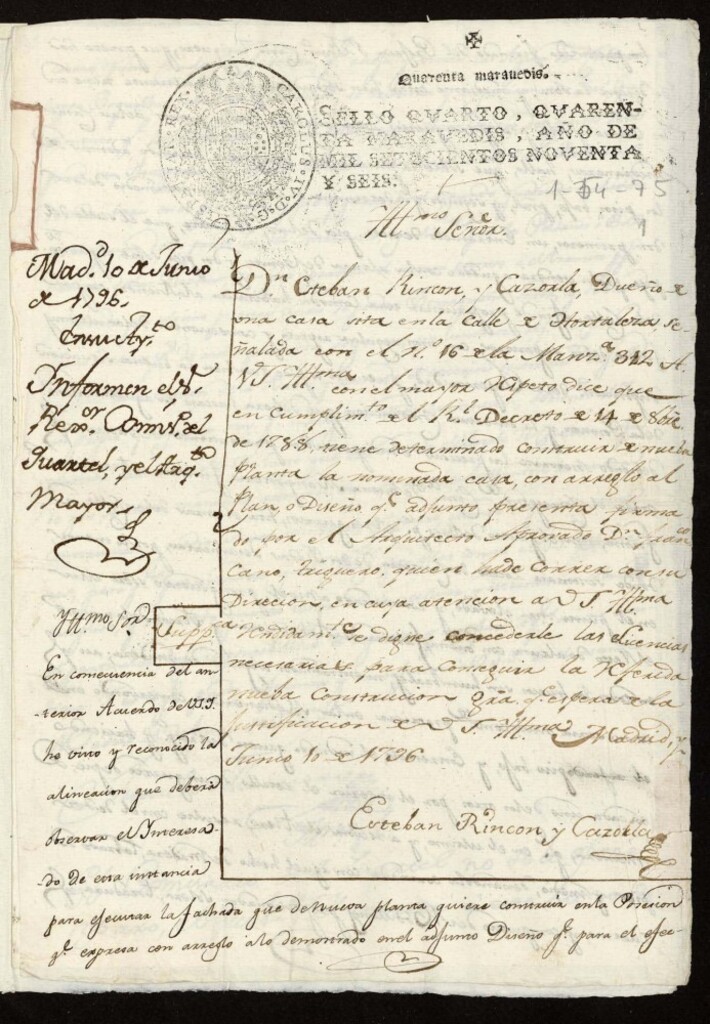 Quarenta maravedis.
SELLO QVARTO, QVAREN-
TA MARAVEDIS, AÑO DE
MIL SETECIENTOS NOVENTA
Y SEIS.
CAROLUS IV D. G. HISPANIAR. REX
1-54-75
1
Yllmo Señor.
Dn Esteban Rincon, y Cazorla, Dueño de
una casa sita en la Calle de Hortaleza se-
ñalada con el No 16 de la Manza 312 A
V.S. Yllma con el mayor respeto dice que
en cumplimto del Rl Decreto de 14 de 8bre
de 1788, tiene determinado construir de nueba
planta la nominada casa, con arreglo al
Plan, o Diseño qe adjunto presenta firma
do por el Arquitecto Aprovado Dn Franco
Cano, Triguero, quien ha de correr con su
Direcion, en cuya atencion a V.S. Yllma
Suppca rendidamte se digne concederle las licencias
necesarias para conseguir la referida
nueba Construccion gra qe espera de la
justificacion de V.S. Yllma Madrid, y
Junio 10 de 1796
Esteban Rincon y Cazorla
Madd 10 de Junio
de 1796.
En su Ayto
Informen el Sr
Rexor Comiso del
Quartel, y el Arqto
Mayor
Yllmo Sor
En consecuencia del an-
terior Acuerdo de V.S.Y.
he visto y reconocido la
alineacion que deberá
observar el Interesa-
do de esta instancia
para ejecutar la fachada que de nueva planta quiere construir en la Posesion
qe expresa con arreglo a lo demostrado en el adjunto Diseño qe para el efec-